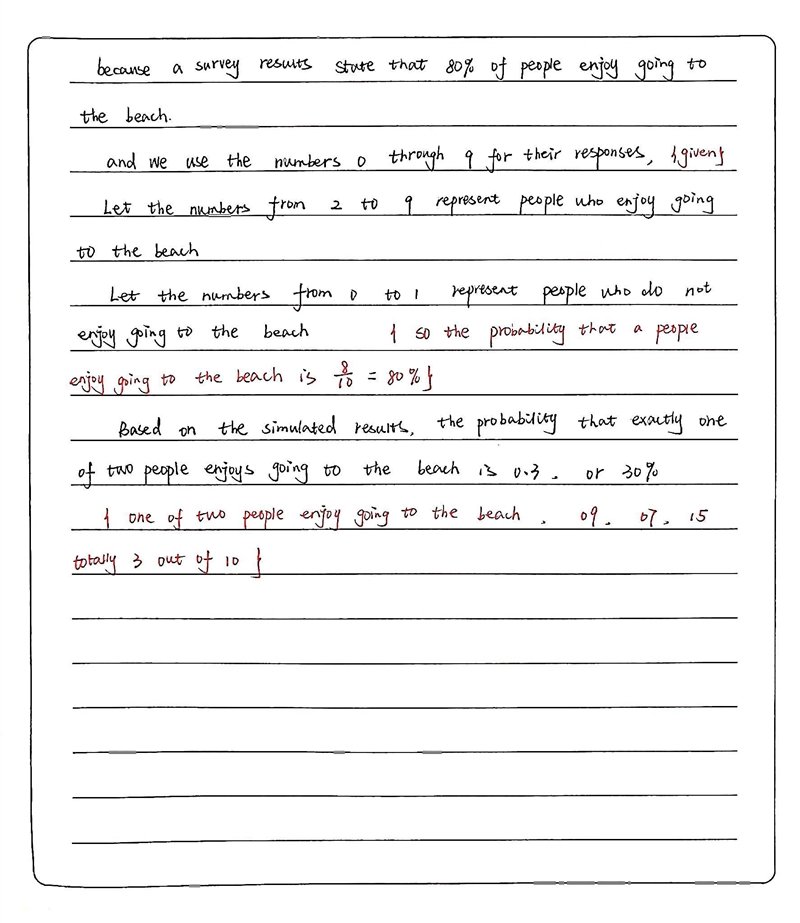 because a survey results state that 80% of people enjoy going to
the beach.
and we use the numbers 0 through 9 for their responses, {given}
Let the numbers from 2 to 9 represent people who enjoy going
to the beach
Let the numbers from 0 to 1 represent people who do not
enjoy going to the beach { so the probability that a people
enjoy going to the beach is 8/10 = 80%}
Based on the simulated results, the probability that exactly one
of two people enjoys going to the beach is 0.3. or 30%
{ one of two people enjoy going to the beach. 09. 07. 15
totally 3 out of 10 }